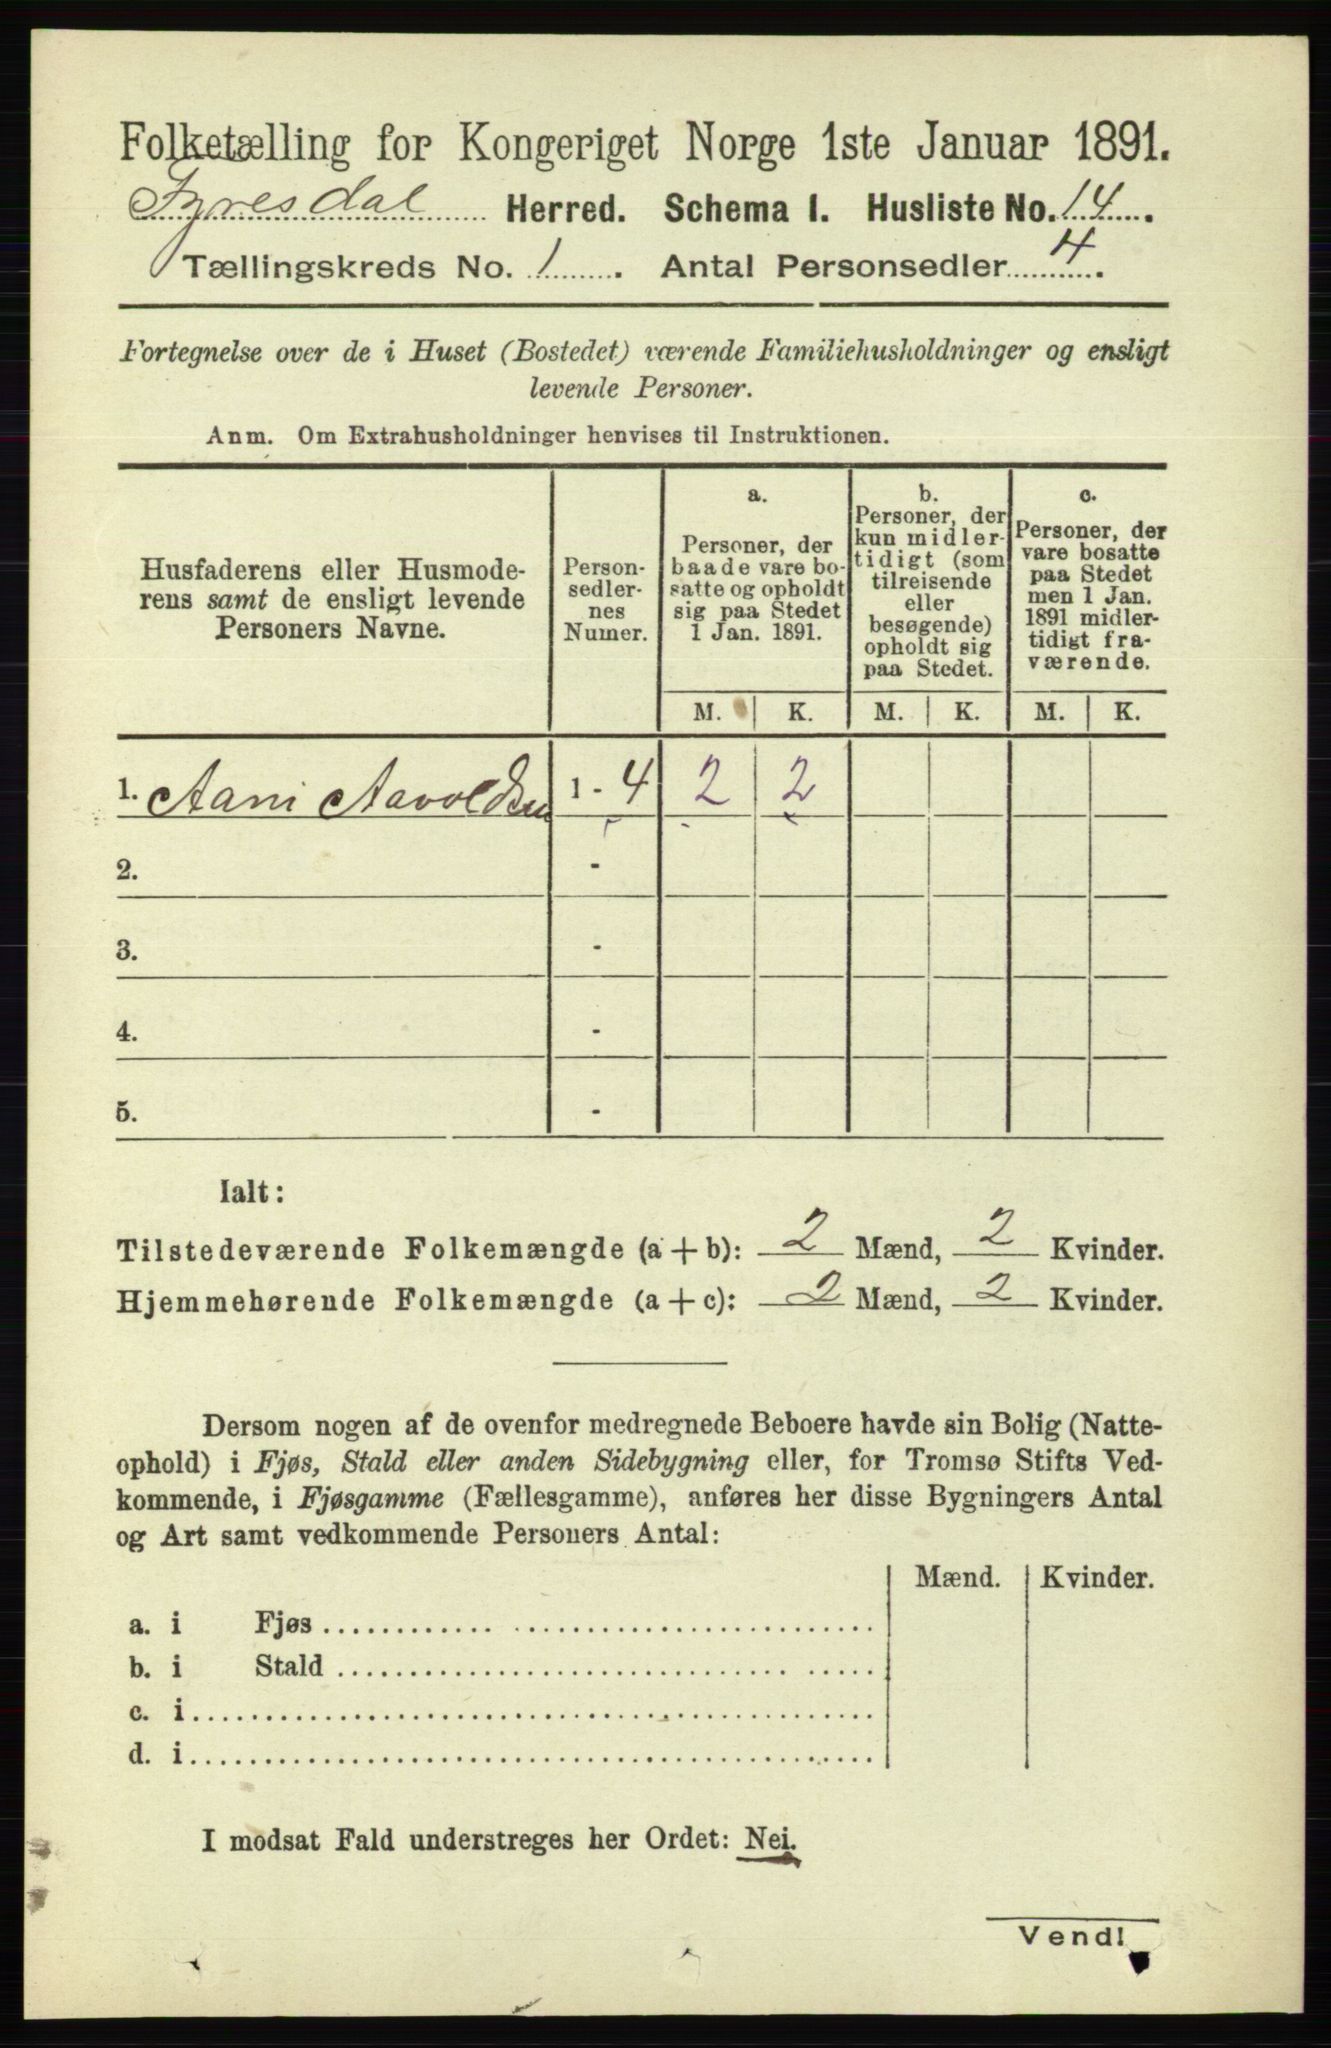 Folketælling for Kongeriget Norge 1ste Januar 1891.
Fyresdal Herred. Schema I. Husliste No. 14.
Tællingskreds No. 1. Antal Personsedler 4.
Fortegnelse over de i Huset (Bostedet) værende Familiehusholdninger og ensligt
levende Personer.
Anm. Om Extrahusholdninger henvises til Instruktionen.
Husfaderens eller Husmode-
rens samt de ensligt levende
Personers Navne.
Person-
sedler-
nes
Numer.
a.
Personer, der
baade vare bo-
satte og opholdt
sig paa Stedet
1 Jan. 1891.
b.
Personer, der
kun midler-
tidigt (som
tilreisende
eller
besøgende)
opholdt sig
paa Stedet.
c.
Personer, der
vare bosatte
paa Stedet
men 1 Jan.
1891 midler-
tidigt fra-
værende.
M. K. M. K. M. K.
1. Aani Aavoldsen 1 - 4 2 2
2. -
3. -
4. -
5. -
Ialt:
Tilstedeværende Folkemængde (a + b): 2 Mænd, 2 Kvinder.
Hjemmehørende Folkemængde (a + c): 2 Mænd, 2 Kvinder.
Dersom nogen af de ovenfor medregnede Beboere havde sin Bolig (Natte-
ophold) i Fjøs, Stald eller anden Sidebygning eller, for Tromsø Stifts Ved-
kommende, i Fjøsgamme (Fællesgamme), anføres her disse Bygningers Antal
og Art samt vedkommende Personers Antal:
Mænd. Kvinder.
a. i Fjøs
b. i Stald
c. i
d. i
I modsat Fald understreges her Ordet: Nei.
Vend!